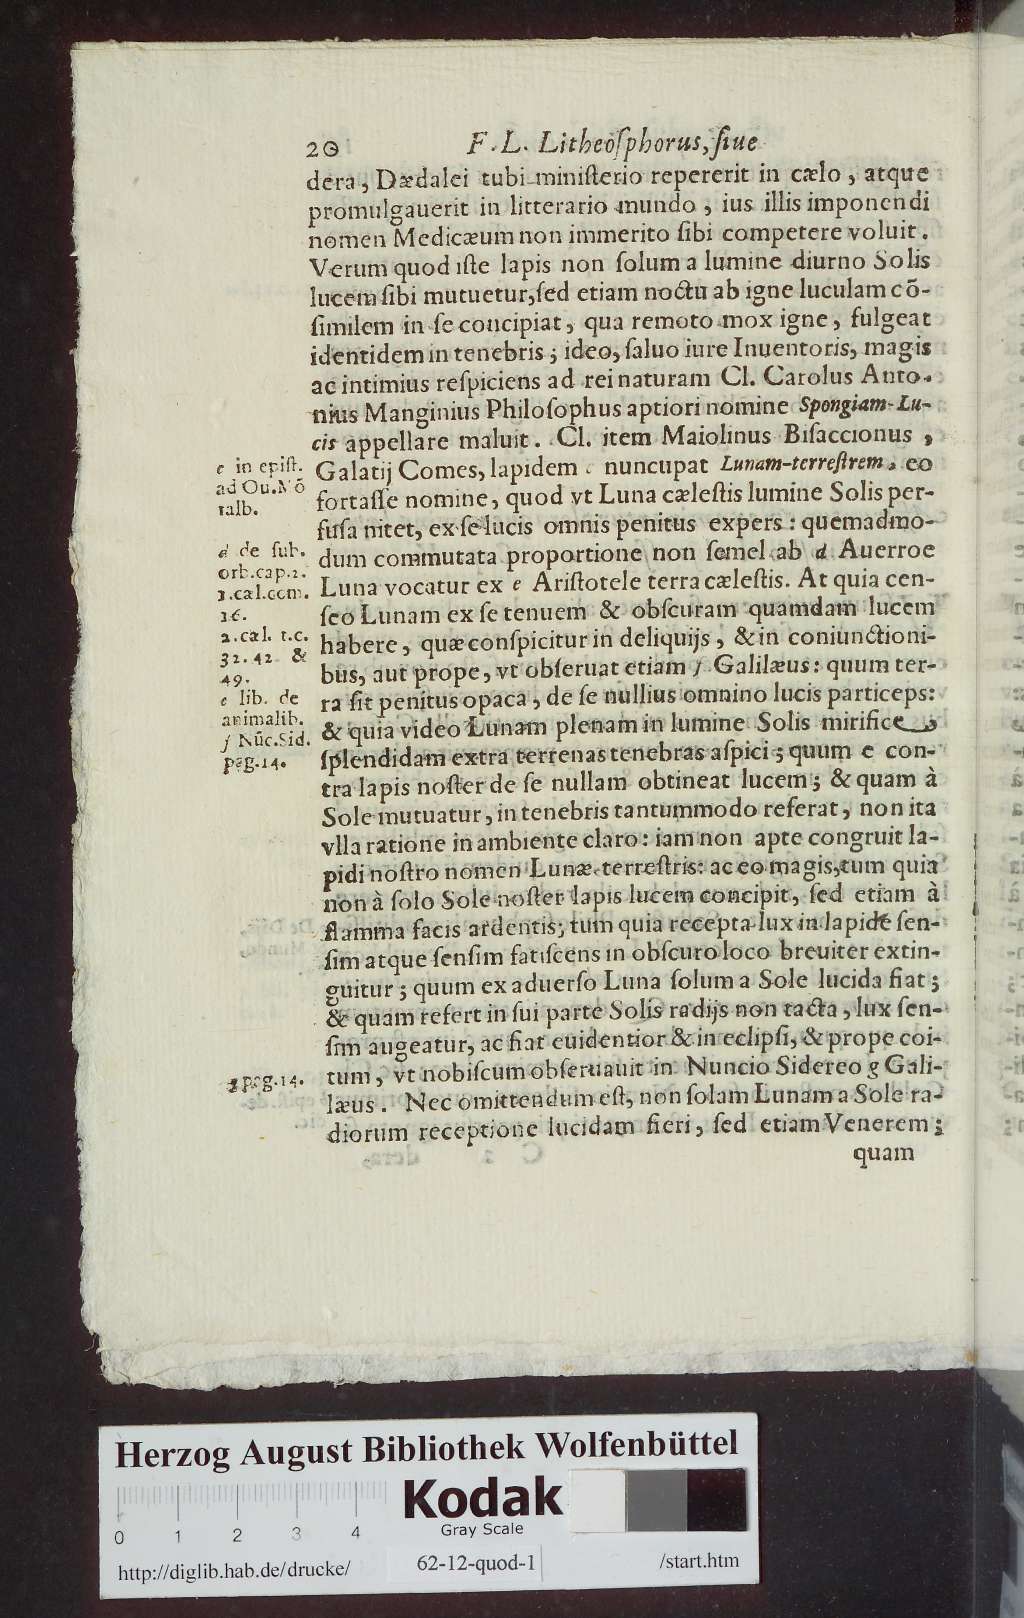 20 F. L. Litheoſphorus, ſiue
dera, Dædalei tubi miniſterio repererit in cælo, atque
promulgauerit in litterario mundo, ius illis imponendi
nomen Medicæum non immerito ſibi competere voluit.
Verum quod iſte lapis non ſolum a lumine diurno Solis
lucem ſibi mutuetur, ſed etiam noctu ab igne luculam cõ-
ſimilem in ſe concipiat, qua remoto mox igne, fulgeat
identidem in tenebris; ideo, ſaluo iure Inuentoris, magis
ac intimius reſpiciens ad rei naturam Cl. Carolus Anto-
nius Manginius Philoſophus aptiori nomine Spongiam-Lu-
cis appellare maluit. Cl. item Maiolinus Biſaccionus,
Galatij Comes, lapidem c nuncupat Lunam-terreſtrem, eo
fortaſſe nomine, quod vt Luna cæleſtis lumine Solis per-
fuſa nitet, ex ſe lucis omnis penitus expers: quemadmo-
dum commutata proportione non ſemel ab d Auerroe
Luna vocatur ex e Ariſtotele terra cæleſtis. At quia cen-
ſeo Lunam ex ſe tenuem & obſcuram quamdam lucem
habere, quæ conſpicitur in deliquijs, & in coniunctioni-
bus, aut prope, vt obſeruat etiam f Galilæus: quum ter-
ra ſit penitus opaca, de ſe nullius omnino lucis particeps:
& quia video Lunam plenam in lumine Solis mirifice
ſplendidam extra terrenas tenebras aſpici; quum e con-
tra lapis noſter de ſe nullam obtineat lucem; & quam à
Sole mutuatur, in tenebris tantummodo referat, non ita
vlla ratione in ambiente claro: iam non apte congruit la-
pidi noſtro nomen Lunæ-terreſtris: ac eo magis, tum quia
non à ſolo Sole noſter lapis lucem concipit, ſed etiam à
flamma facis ardentis; tum quia recepta lux in lapide ſen-
ſim atque ſenſim fatiſcens in obſcuro loco breuiter extin-
guitur; quum ex aduerſo Luna ſolum a Sole lucida fiat;
& quam refert in ſui parte Solis radijs non tacta, lux ſen-
ſim augeatur, ac fiat euidentior & in eclipſi, & prope coi-
tum, vt nobiſcum obſeruauit in Nuncio Sidereo g Gali-
læus. Nec omittendum eſt, non ſolam Lunam a Sole ra-
diorum receptione lucidam fieri, ſed etiam Venerem;
quam
c in epiſt.
ad Ou. Mõ
talb.
d de ſub.
orb. cap. 2.
2. cæl. com.
16.
2. cæl. t.c.
32. 42 &
49.
e lib. de
animalib.
f Nũc. Sid.
pag. 14.
g pag. 14.
Herzog August Bibliothek Wolfenbüttel
Kodak
Gray Scale
0 1 2 3 4
http://diglib.hab.de/drucke/ 62-12-quod-1 /start.htm